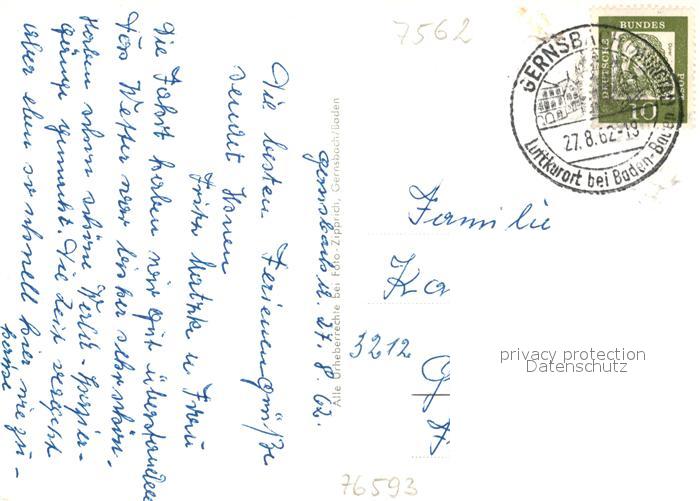 7562
GERNSBACH (MURGTAL)
27.8.62-19
Luftkurort bei Baden-Baden
DEUTSCHE
BUNDES
POST
10
Gernsbach d. 27. 8. 62.
Die besten Feriengrüße
sendet Ihnen
Fritz u Frau
Die Fahrt haben wir gut überstanden
Das Wetter war bisher sehr schön.
Haben schon schöne Wald-
gänge gemacht. Die Zeit vergeht
aber eben so schnell hier wie zu-
hause
Alle Urheberrechte bei Foto-Zipprich, Gernsbach/Baden
Familie
Ka
3212
G
76593
privacy protection
Datenschutz